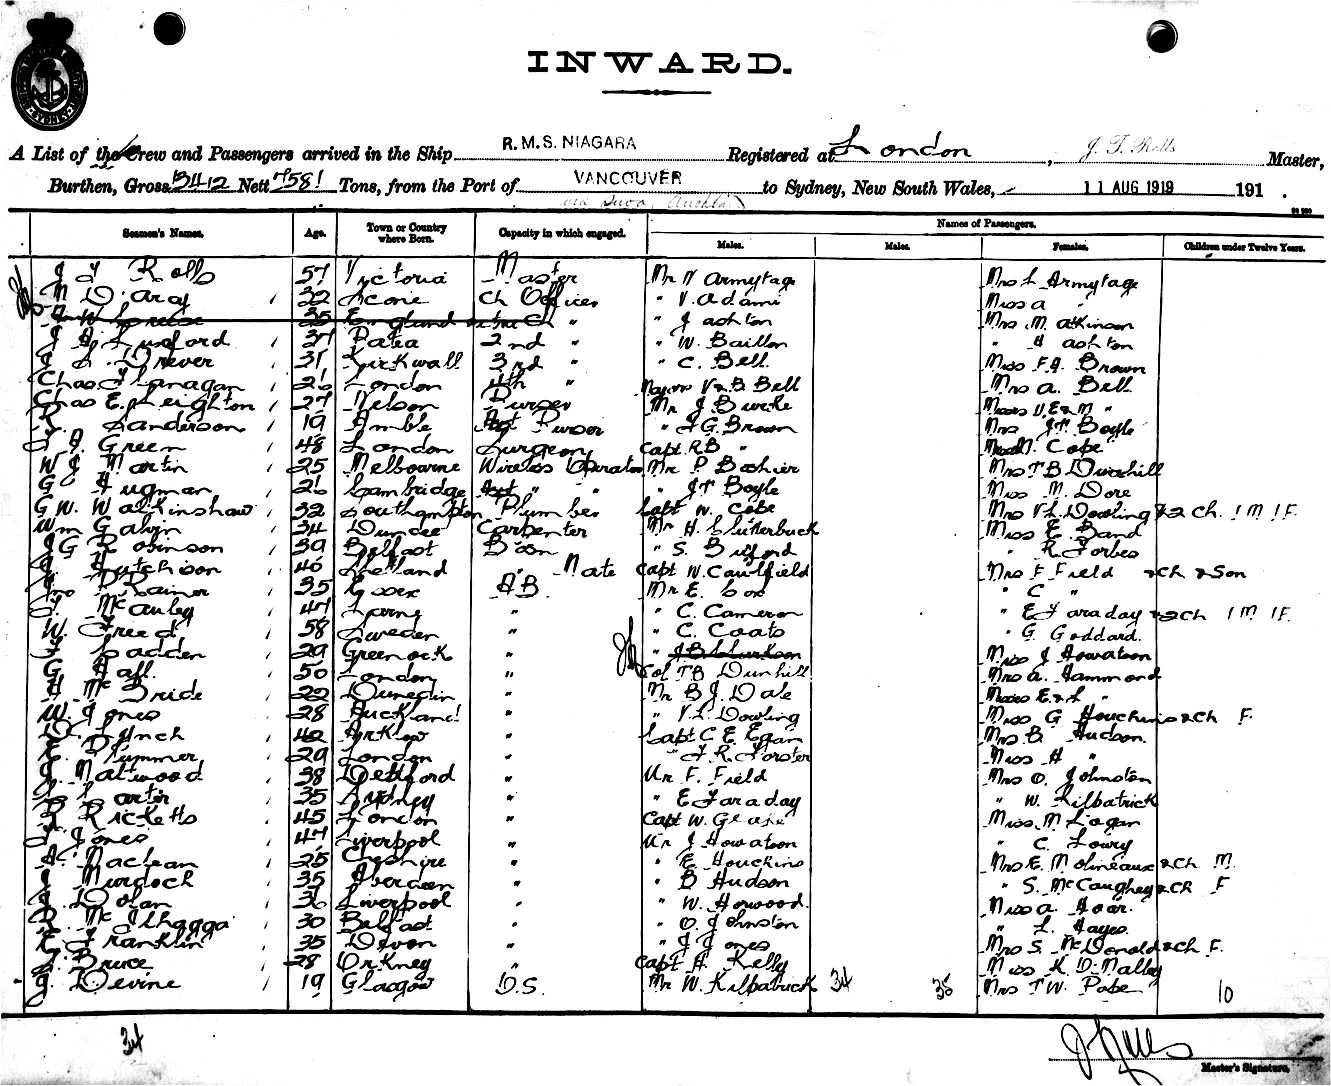 INWARD.
A List of the Crew and Passengers arrived in the Ship R.M.S. NIAGARA Registered at London, J. T. Rolls Master,
Burthen, Gross 13412 Nett 7581 Tons, from the Port of VANCOUVER to Sydney, New South Wales, 11 AUG 1919 191 .
via Suva, Auckland
Names of Passengers.
Seamen's Names. Age. Town or Country where Born. Capacity in which engaged. Males. Males. Females. Children under Twelve Years.
J T Rolls 57 Victoria Master Mr V Armytage Mrs L Armytage
M D'aray 32 Scone Ch Officer " V. Adami Miss a "
35 England " J ashton Mrs M. atkinson
J H Lunford 37 Patea 2nd " " W. Baillon " H ashton
J L. Drever 31 Kirkwall 3rd " " C. Bell Miss F.J. Brown
Chas Flanagan 26 London 4th " Majors V & B Bell Mrs a. Bell
Chas E. Leighton 27 Nelson Purser Mr J. Burke Misses V. E & M "
Sanderson 19 Amble Asst Purser " J G. Brown Mrs J T Boyle
Green 48 London Surgeon Capt. RB " M. Cope
W J Martin 25 Melbourne Wireless Operator Mr P Boshier Mrs T B Dunhill
G Fugman 26 Cambridge Asst " " " J T Boyle Miss M. Dore
G W. Walkinshaw 32 Southampton Plumber Capt W. Cope Mrs V L Dowling & 2 Ch. 1 M 1 F.
Wm Galvin 34 Dundee Carpenter Mr H. Clutterbuck Miss E Band
G Robinson 39 Belfast Bosn " S. Bufford " R. Forbes
Hutchison 40 Shetland " Mate Capt W. Caulfield Mrs F Field & Ch & Son
Rainer 35 Essex AB Mr E. Cox " C "
McAuley 47 Larne " " C. Cameron " E Faraday & 2 Ch 1 M 1 F.
W. Freed 58 Sweden " " C. Coats " G Goddard.
Cadden 29 Greenock " Miss J Howatson
G Hall 50 London " Col T B Dunhill Mrs a. Hammond
H McBride 22 Dunedin " Mr B J. Dale Misses E & L "
W. Jones 28 Auckland " " V. L. Dowling Miss G Houchins & Ch F.
Lynch 42 Arklow " Capt. C E. Egan Mrs B Hudson.
Plummer 29 London " " F. R. Forster Miss H "
Maltwood 38 Deptford " Mr F. Field Mrs O. Johnston
Carter 35 Sydney " " E Faraday " W. Kilpatrick
Ricketts 45 London " Capt W. Miss M Logan
Jones 47 Liverpool " Mr J Howatson " C. Lowry
Maclean 25 Cheshire " " E Houchins Mrs E. Molineaux & Ch M.
Murdoch 35 Aberdeen " " B Hudson " S. McCaughey & Ch F
Dolan 36 Liverpool " " W. Horwood Miss a. Hoar.
McIlhagga 30 Belfast " " O. Johnston " L. Hayes.
Franklin 35 Devon " " J Jones Mrs S. McDonald & Ch F.
Bruce 28 Orkney " Capt H Kelly Miss K O'Malley
J. Devine 19 Glasgow D.S. Mr W. Kilpatrick 34 35 Mrs T W. Pabe 10
34
Master's Signature.